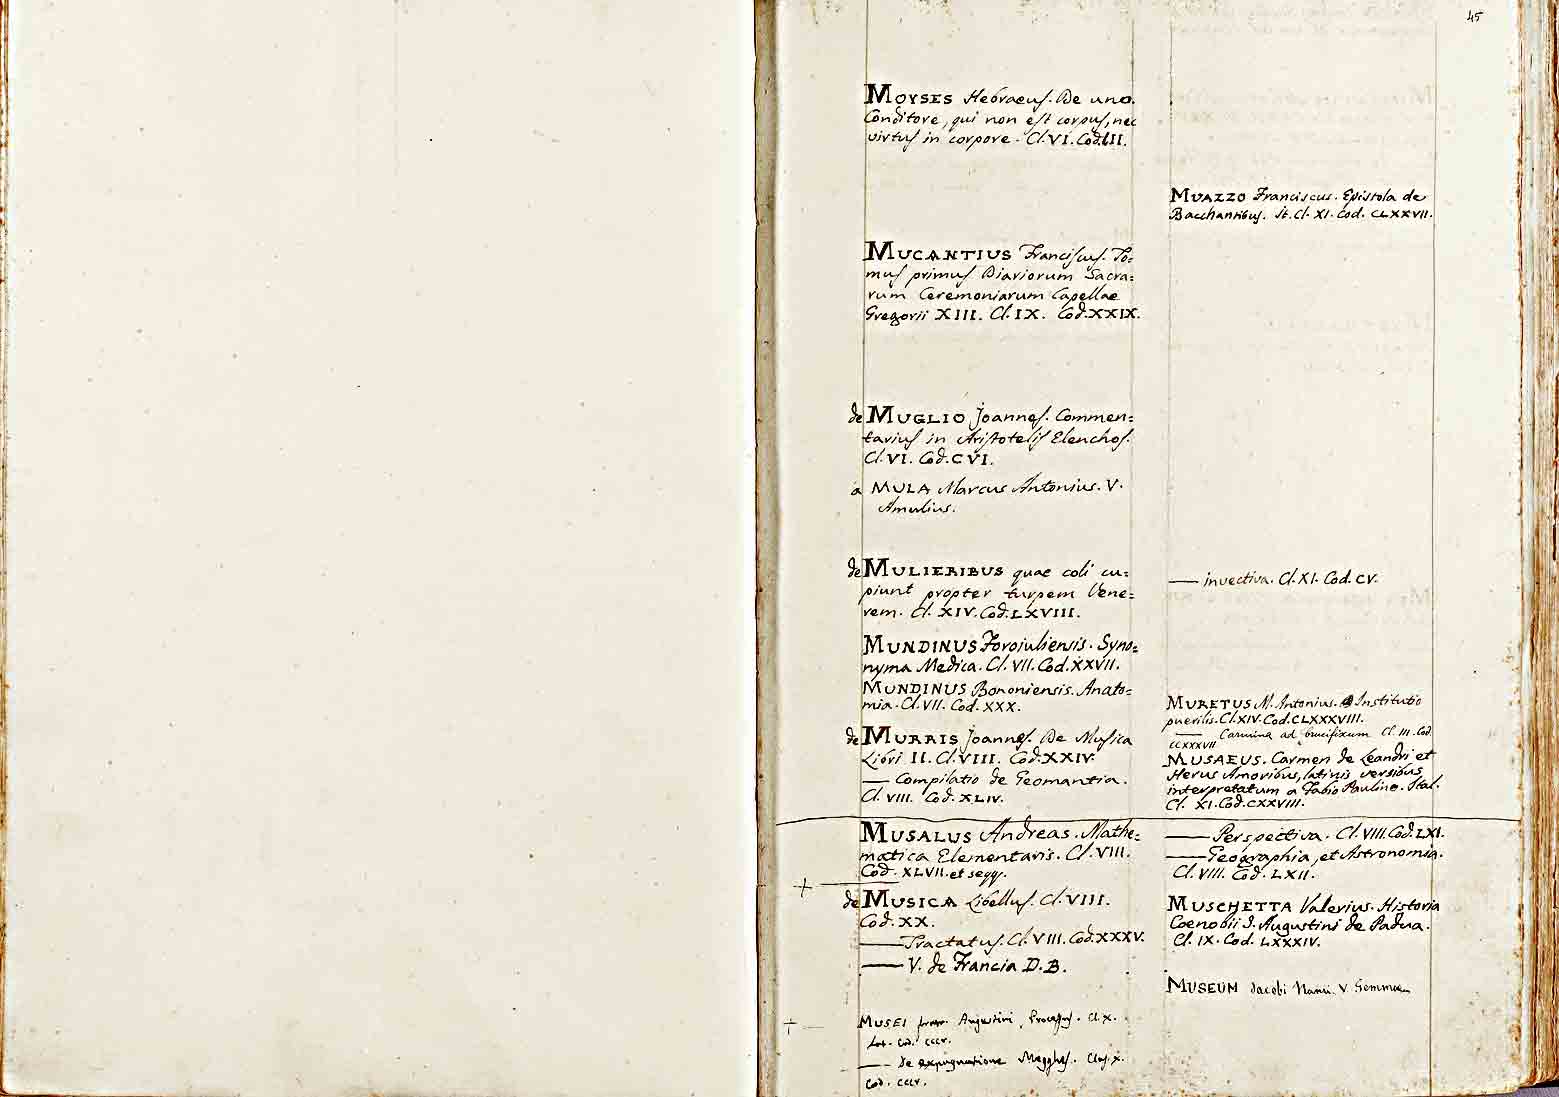 45
MOYSES Hebraeus. De uno
Conditore, qui non est corpus, nec
virtus in corpore. Cl. VI. Cod. LII.
MUCANTIUS Franciscus. To=
mus primus Diariorum Sacra=
rum Ceremoniarum Capellae
Gregorii XIII. Cl. IX. Cod. XXIX.
de MUGLIO Joannes. Commen=
tarius in Aristotelis Elenchos.
Cl. VI. Cod. CVI.
a MULA Marcus Antonius. V.
Amulius.
de MULIERIBUS quae coli cu=
piunt propter turpem Vene=
rem. Cl. XIV. Cod. LXVIII.
MUNDINUS Forojuliensis. Syno=
nyma Medica. Cl. VII. Cod. XXVII.
MUNDINUS Bononiensis. Anato=
mia. Cl. VII. Cod. XXX.
de MURRIS Joannes. De Musica
Libri II. Cl. VIII. Cod. XXIV.
— Compilatio de Geomantia.
Cl. VIII. Cod. XLIV.
MUSALUS Andreas. Mathe=
matica Elementaris. Cl. VIII.
Cod. XLVII. et seqq.
de MUSICA Libellus. Cl. VIII.
Cod. XX.
— Tractatus. Cl. VIII. Cod. XXXV.
— V. de Francia D. B.
MUSEI Augustini, Cl. X.
Lat. Cod. CCCV.
— de expugnatione Cl. X.
Cod. CCCV.
MUAZZO Franciscus. Epistola de
Bacchantibus. It. Cl. XI. Cod. CLXXVII.
— invectiva. Cl. XI. Cod. CV.
MURETUS M. Antonius. Institutio
puerilis. Cl. XIV. Cod. CLXXXVIII.
— Carmina ad Crucifixum Cl. III. Cod.
CLXXXVII
MUSAEUS. Carmen de Leandri et
Herus Amoribus, latinis versibus
interpretatum a Fabio Paulino. Ital.
Cl. XI. Cod. CXXVIII.
— Perspectiva. Cl. VIII. Cod. LXI.
— Geographia, et Astronomia.
Cl. VIII. Cod. LXII.
MUSCHETTA Valerius. Historia
Coenobii S. Augustini de Padua.
Cl. IX. Cod. LXXXIV.
MUSEUM Jacobi Nanii. V. Gemmae